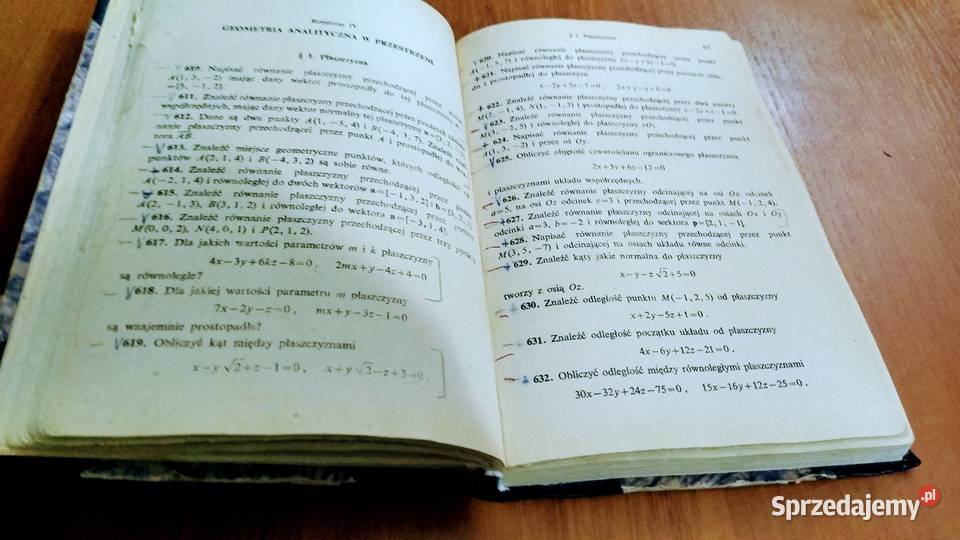 Rozdział IV
GEOMETRIA ANALITYCZNA W PRZESTRZENI
§ 1. Płaszczyzna
610. Napisać równanie płaszczyzny przechodzącej przez punkt
A(1, 3, −2) mając dany wektor prostopadły do tej płaszczyzny
[3, −1, 2]
611. Znaleźć równanie płaszczyzny przechodzącej przez początek układu
współrzędnych, mając dany wektor normalny tej płaszczyzny
612. Dane są dwa punkty A(1, −5, 4) i B(−4, 3, 7). Znaleźć
nanie płaszczyzny przechodzącej przez punkt A i prostopadłej do wek-
tora AB.
613. Znaleźć miejsce geometryczne punktów, których odległości od
punktów A(2, 1, 4) i B(−4, 3, 2) są sobie równe.
614. Znaleźć równanie płaszczyzny przechodzącej przez punkt
A(−2, 1, 4) i równoległej do dwóch wektorów a=[−1, 3, 2] i
615. Znaleźć równanie płaszczyzny przechodzącej przez punkty
A(2, −1, 3), B(3, 1, 2) i równoległej do wektora a=[−3, 1, 4].
616. Znaleźć równanie płaszczyzny przechodzącej przez trzy punkty
M(0, 0, 2), N(4, 0, 1) i P(2, 1, 2).
617. Dla jakich wartości parametrów m i k płaszczyzny
4x−3y+6kz−8=0, 2mx+y−4z+4=0
są równoległe?
618. Dla jakiej wartości parametru m płaszczyzny
7x−2y−z=0, mx+y−3z−1=0
są wzajemnie prostopadłe?
619. Obliczyć kąt między płaszczyznami
x−y√2+z−1=0, x+y√2−z+3=0.
§ 1. Płaszczyzna
620. Napisać równanie płaszczyzny przechodzącej przez punkt
i równoległej do płaszczyzny
621. Napisać równanie płaszczyzny przechodzącej przez początek ukła-
du i prostopadłej do płaszczyzn
x−2y+5z−7=0,
622. Znaleźć równanie płaszczyzny przechodzącej przez dwa punkty
M(2, −1, 4), N(1, −1, 5) i prostopadłej do płaszczyzny
623. Znaleźć równanie płaszczyzny przechodzącej przez punkt
M(3, −2, 5) i równoległej do płaszczyzny
624. Napisać równanie płaszczyzny przechodzącej przez punkt
A(1, 3, −2) i przez oś Oy.
625. Obliczyć objętość czworościanu ograniczonego płaszczyzną
2x+3y+6z−12=0
i płaszczyznami układu współrzędnych.
626. Znaleźć równanie płaszczyzny odcinającej na osi Ox odcinek
a=5, na osi Oz odcinek c=3 i przechodzącej przez punkt M(−1, 2, 4).
627. Znaleźć równanie płaszczyzny odcinającej na osiach Ox i Oy
odcinki a=3, b=−2 i równoległej do wektora p=[2, 1, −1].
628. Napisać równanie płaszczyzny przechodzącej przez punkt
M(3, 5, −7) i odcinającej na osiach układu równe odcinki.
629. Znaleźć kąty jakie normalna do płaszczyzny
x−y−z√2+5=0
tworzy z osią Oz.
630. Znaleźć odległość punktu M(−1, 2, 5) od płaszczyzny
x+2y−5z+1=0.
631. Znaleźć odległość początku układu od płaszczyzny
4x−6y+12z−21=0.
632. Obliczyć odległość między równoległymi płaszczyznami
30x−32y+24z−75=0, 15x−16y+12z−25=0.
Sprzedajemy.pl